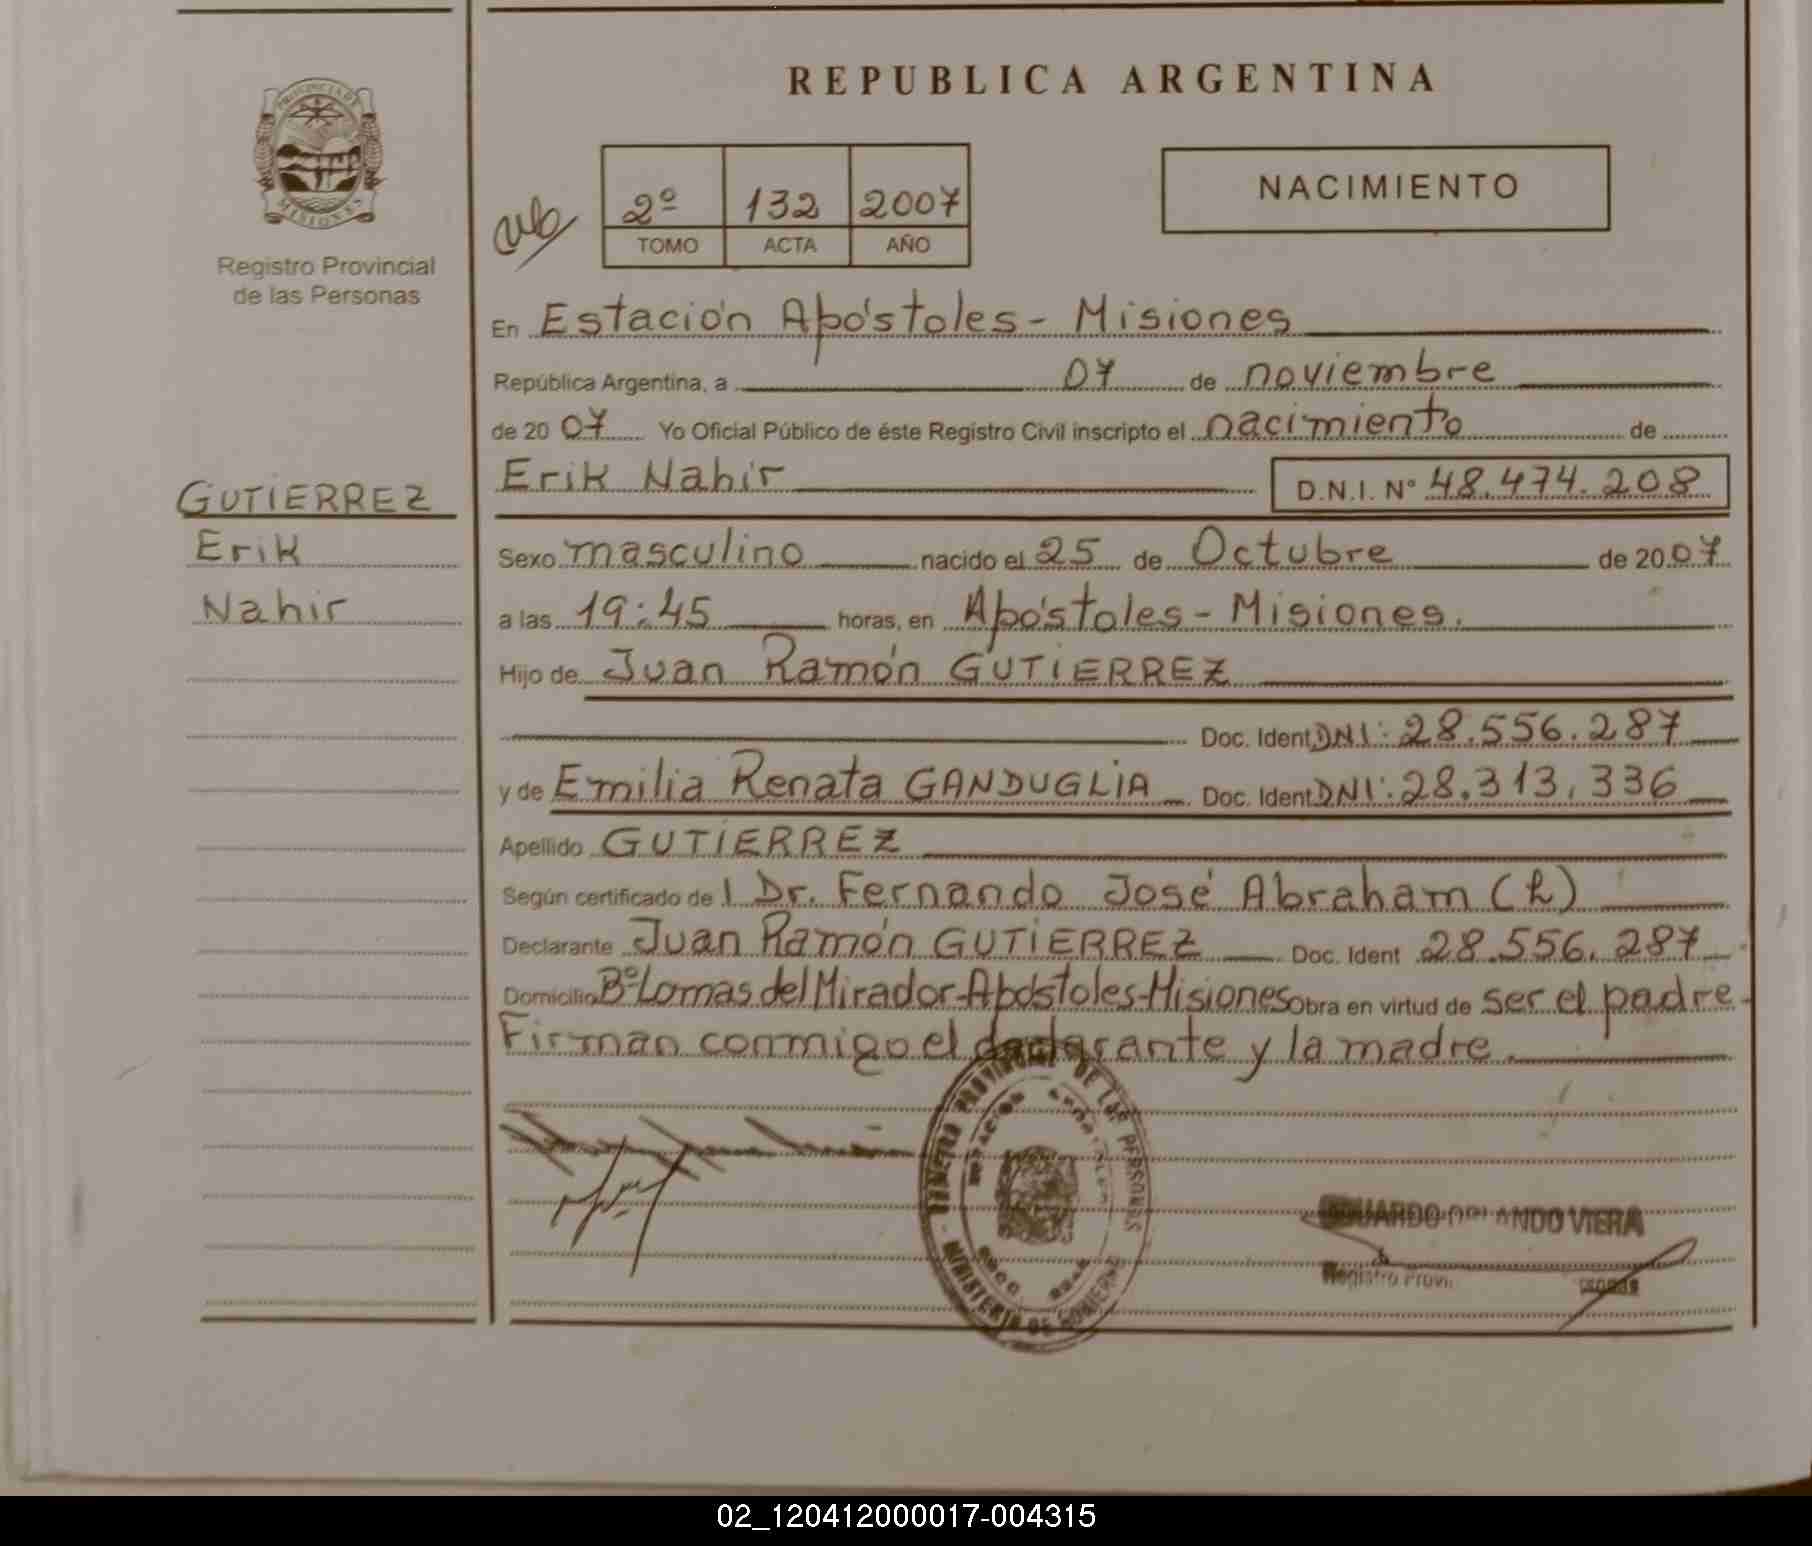 REPUBLICA ARGENTINA
PROVINCIA DE
MISIONES
Registro Provincial
de las Personas
2º 132 2007
TOMO ACTA AÑO
NACIMIENTO
En Estación Apóstoles - Misiones
República Argentina, a 07 de noviembre
de 2007 Yo Oficial Público de éste Registro Civil inscripto el nacimiento de
Erik Nahir D.N.I. Nº 48.474.208
GUTIERREZ
Erik
Nahir
Sexo masculino nacido el 25 de Octubre de 2007
a las 19:45 horas, en Apóstoles - Misiones.
Hijo de Juan Ramón GUTIERREZ
Doc. Ident DNI: 28.556.287
y de Emilia Renata GANDUGLIA Doc. Ident DNI: 28.313.336
Apellido GUTIERREZ
Según certificado de l Dr. Fernando José Abraham (h)
Declarante Juan Ramón GUTIERREZ Doc. Ident 28.556.287
Domicilio Bº Lomas del Mirador - Apóstoles - Misiones Obra en virtud de ser el padre -
Firman conmigo el declarante y la madre.
PROVINCIAL DE LAS PERSONAS
MINISTERIO DE GOBIERNO
VIERA
Registro
02_120412000017-004315